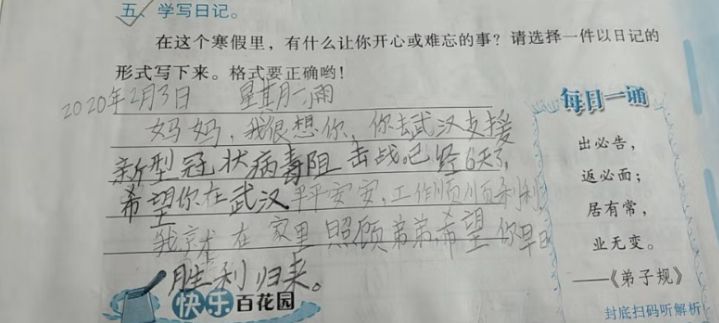 五、学写日记。
在这个寒假里，有什么让你开心或难忘的事？请选择一件以日记的
形式写下来。格式要正确哟！
2020年2月3日 星期一 雨
妈妈，我很想你，你去武汉支援
新型冠状病毒阻击战已经6天了，
希望你在武汉平平安安，工作顺顺利利
我在家里照顾弟弟，希望你早日
胜利归来。
快乐百花园
每日一诵
出必告，
返必面；
居有常，
业无变。
——《弟子规》
封底扫码听解析